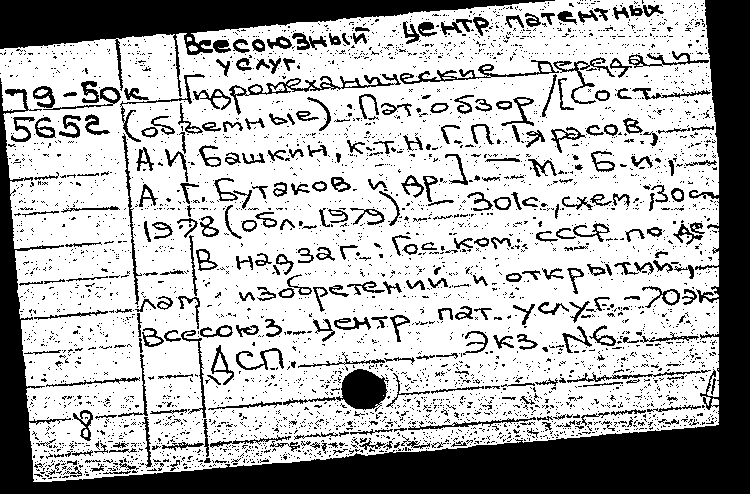 Всесоюзный центр патентных
услуг.
79-50к Гидромеханические передачи
5652 (объемные) : Пат. обзор / [Сост.
А.И. Башкин, к.т.н. Г.П. Тярасов,
А.Г. Бутаков и др.]. — М. : Б.и.,
1978 (обл. 1979). — 301с., схем.; 30см
В надзаг. : Гос. ком. СССР по де-
лам изобретений и открытий,
Всесоюз. центр пат. услуг. - 70экз
ДСП. Экз. N6.
8